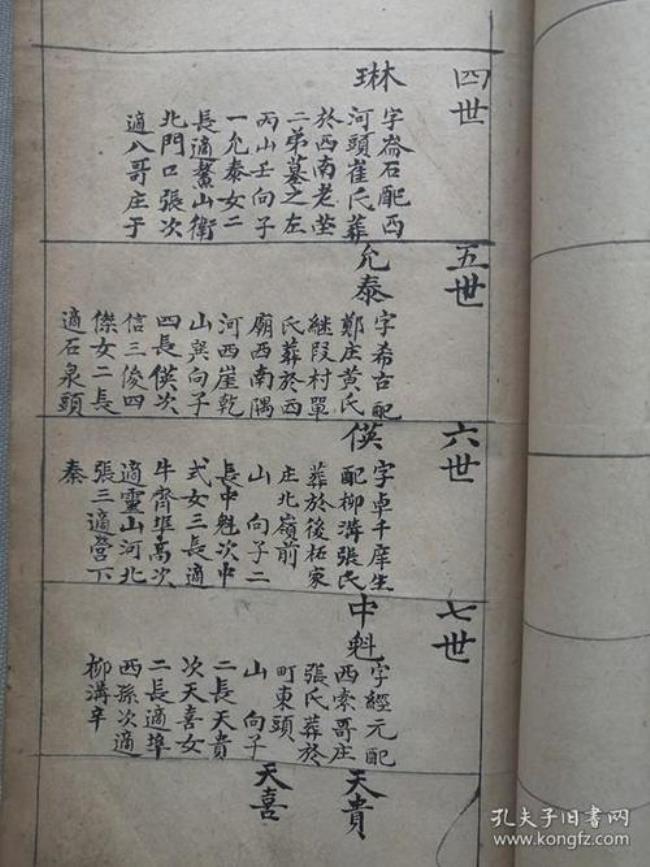 四世
琳
字崙石配西
河頭崔氏葬
於西南老茔
二弟墓之左
丙山壬向子
一允泰女二
長適鰲山衛
北門口張次
適八哥庄于
五世
允泰
字希古配
鄭庄黄氏
継叚村單
氏葬於西
廟西南隅
河西崖乾
山巽向子
四長偀次
信三俊四
傑女二長
適石泉頭
六世
偀
字卓千庠生
配柳溝張氏
葬於後柘家
庄北嶺前
山 向子二
長中魁次中
式女三長適
牛齊埠高次
適靈山河北
張三適营下
秦
七世
中魁
字經元配
西索哥庄
張氏葬於
町東頭
山 向子
二長天貴
次天喜女
二長適埠
西孫次適
柳溝辛
天貴
天喜
孔夫子旧書网
www.kongfz.com